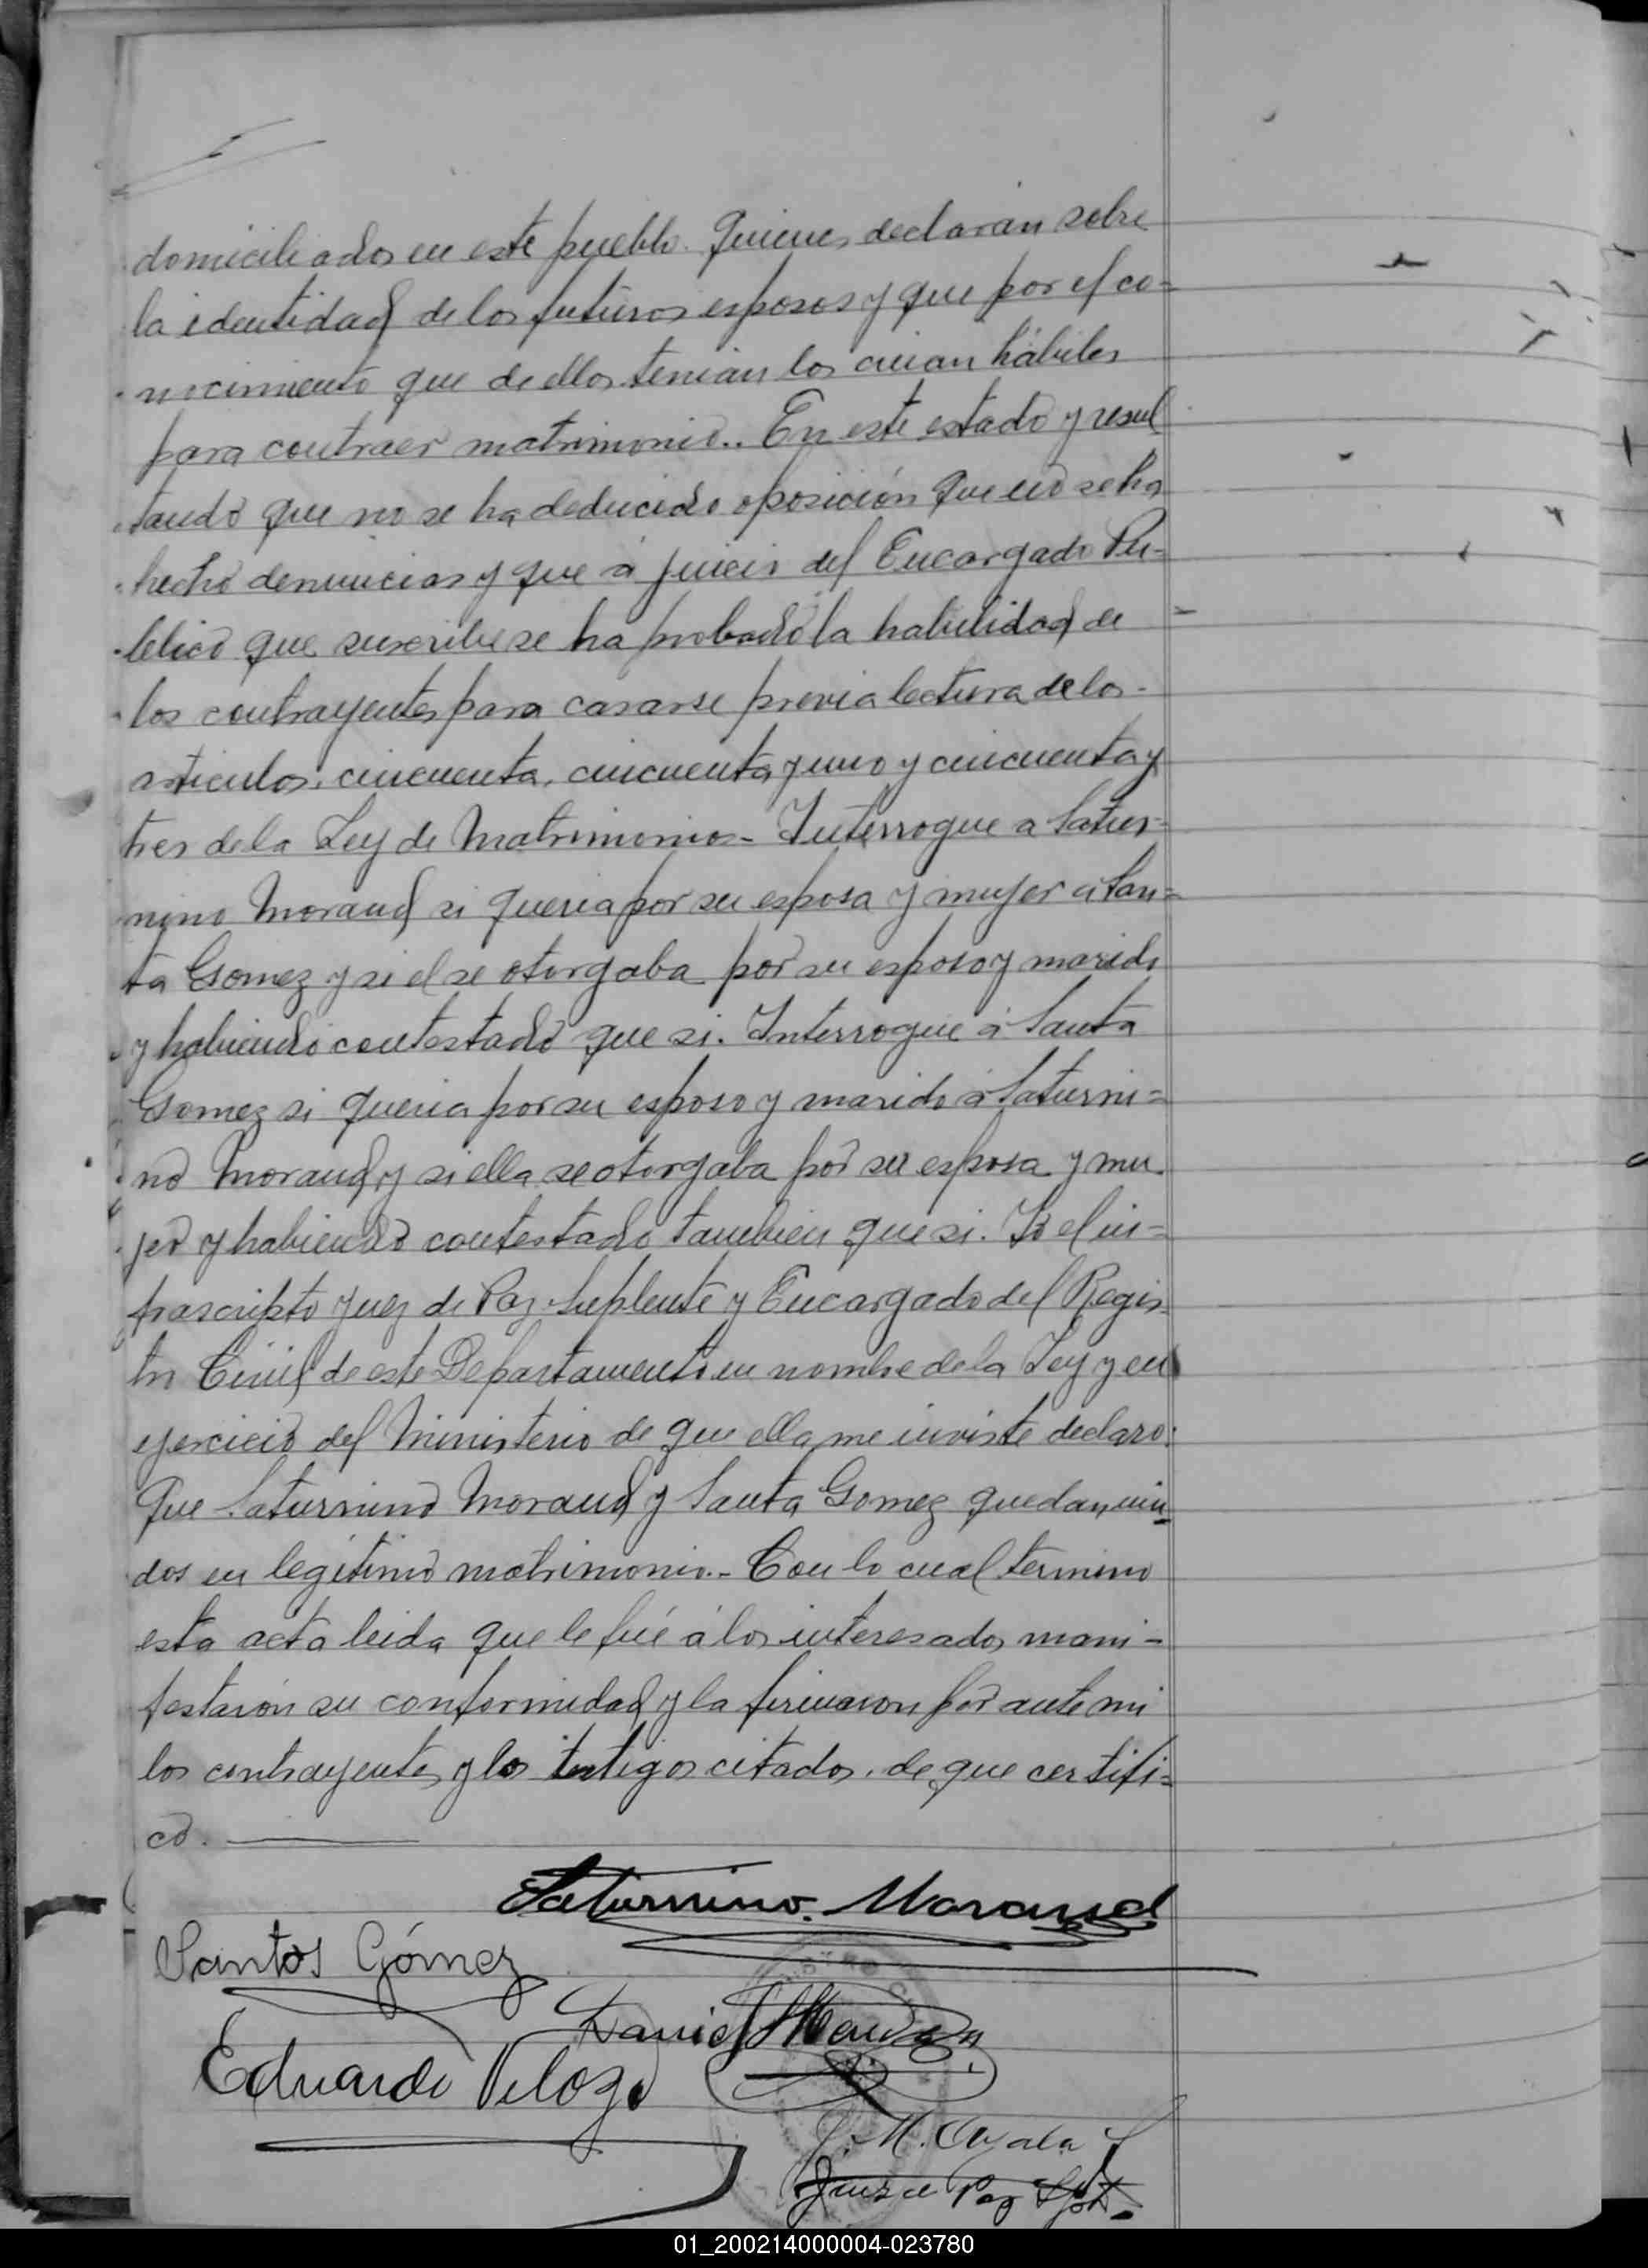 domiciliados en este pueblo. Quienes declaran sobre
la identidad de los futuros esposos y que por el co=
nocimiento que de ellos tenian los creian hábiles
para contraer matrimonio.. En este estado y resul
tando que no se ha deducido oposición que no se ha
hecho denuncias y que a juicio del Encargado Pú=
blico que suscribe se ha probado la habilidad de
los contrayentes para casarse previa lectura de los
articulos: cincuenta, cincuenta y uno y cincuenta y
tres de la Ley de Matrimonios- Interrogue a Satur=
nino Moraud si queria por su esposa y mujer a San=
ta Gomez y si el se otorgaba por su esposo y marido
y habiendo contestado que si. Interrogue á Santa
Gomez si queria por su esposo y marido á Saturni=
no Moraud y si ella se otorgaba por su esposa y mu
jer y habiendo contestado tambien que si. Yo el in=
frascripto Juez de Paz Suplente y Encargado del Regis=
tro Civil de este Departamento en nombre de la Ley y en
ejercicio del Ministerio de que ella me inviste declaro:
Que Saturnino Moraud y Santa Gomez quedan uni
dos en legítimo matrimonio.- Con lo cual termino
esta acta leida que le fué á los interesados mani-
festaron su conformidad y la firmaron por ante mi
los contrayentes y los testigos citados, de que certifi=
co.
Saturnino. Moraud
Santos Gómez
Daniel
Eduardo Velozo
J. M. Ayala
Juez de Paz Splt.
01_200214000004-023780